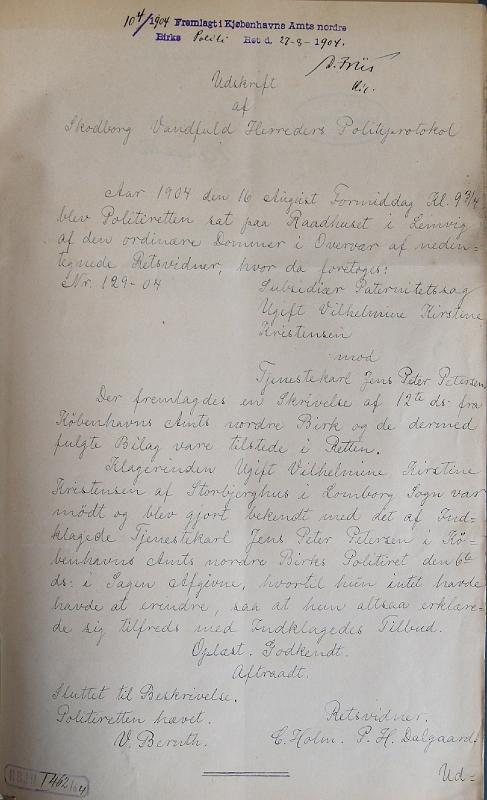 10 4/1904 Fremlagt i Kjøbenhavns Amts nordre
Birks Politi Ret d. 27-8-1904.
D. Friis
Udskrift
af
Skodborg Vandfuld Herreders Politiprotokol
Aar 1904 den 16 August Formiddag Kl. 9 3/4
blev Politiretten sat paa Raadhuset i Lemvig
af den ordinære Dommer i Overvær af neden-
tegnede Retsvidner, hvor da foretoges:
S. Nr. 129-04
Subsidiær Paternitetssag
Ugift Vilhelmine Kirstine
Kristensen
mod
Tjenestekarl Jens Peter Petersen
Der fremlagdes en Skrivelse af 12te ds. fra
Københavns Amts nordre Birk og de dermed
fulgte Bilag vare tilstede i Retten.
Klagerinden Ugift Vilhelmine Kirstine
Kristensen af Storbjerghus i Lomborg Sogn var
mödt og blev gjort bekendt med det af Ind-
klagede Tjenestekarl Jens Peter Petersen i Kö-
benhavns Amts nordre Birks Politiret den 6te
ds. i Sagen Afgivne, hvortil hun intet havde
havde at erindre, saa at hun altsaa erklære-
de sig tilfreds med Indklagedes Tilbud.
Oplæst. Godkendt.
Aftraadt.
Sluttet til Beskrivelse.
Politiretten hævet.
V. Beruth.
Retsvidner.
C. Holm. P. H. Dalgaard.
Ud=
T462/04